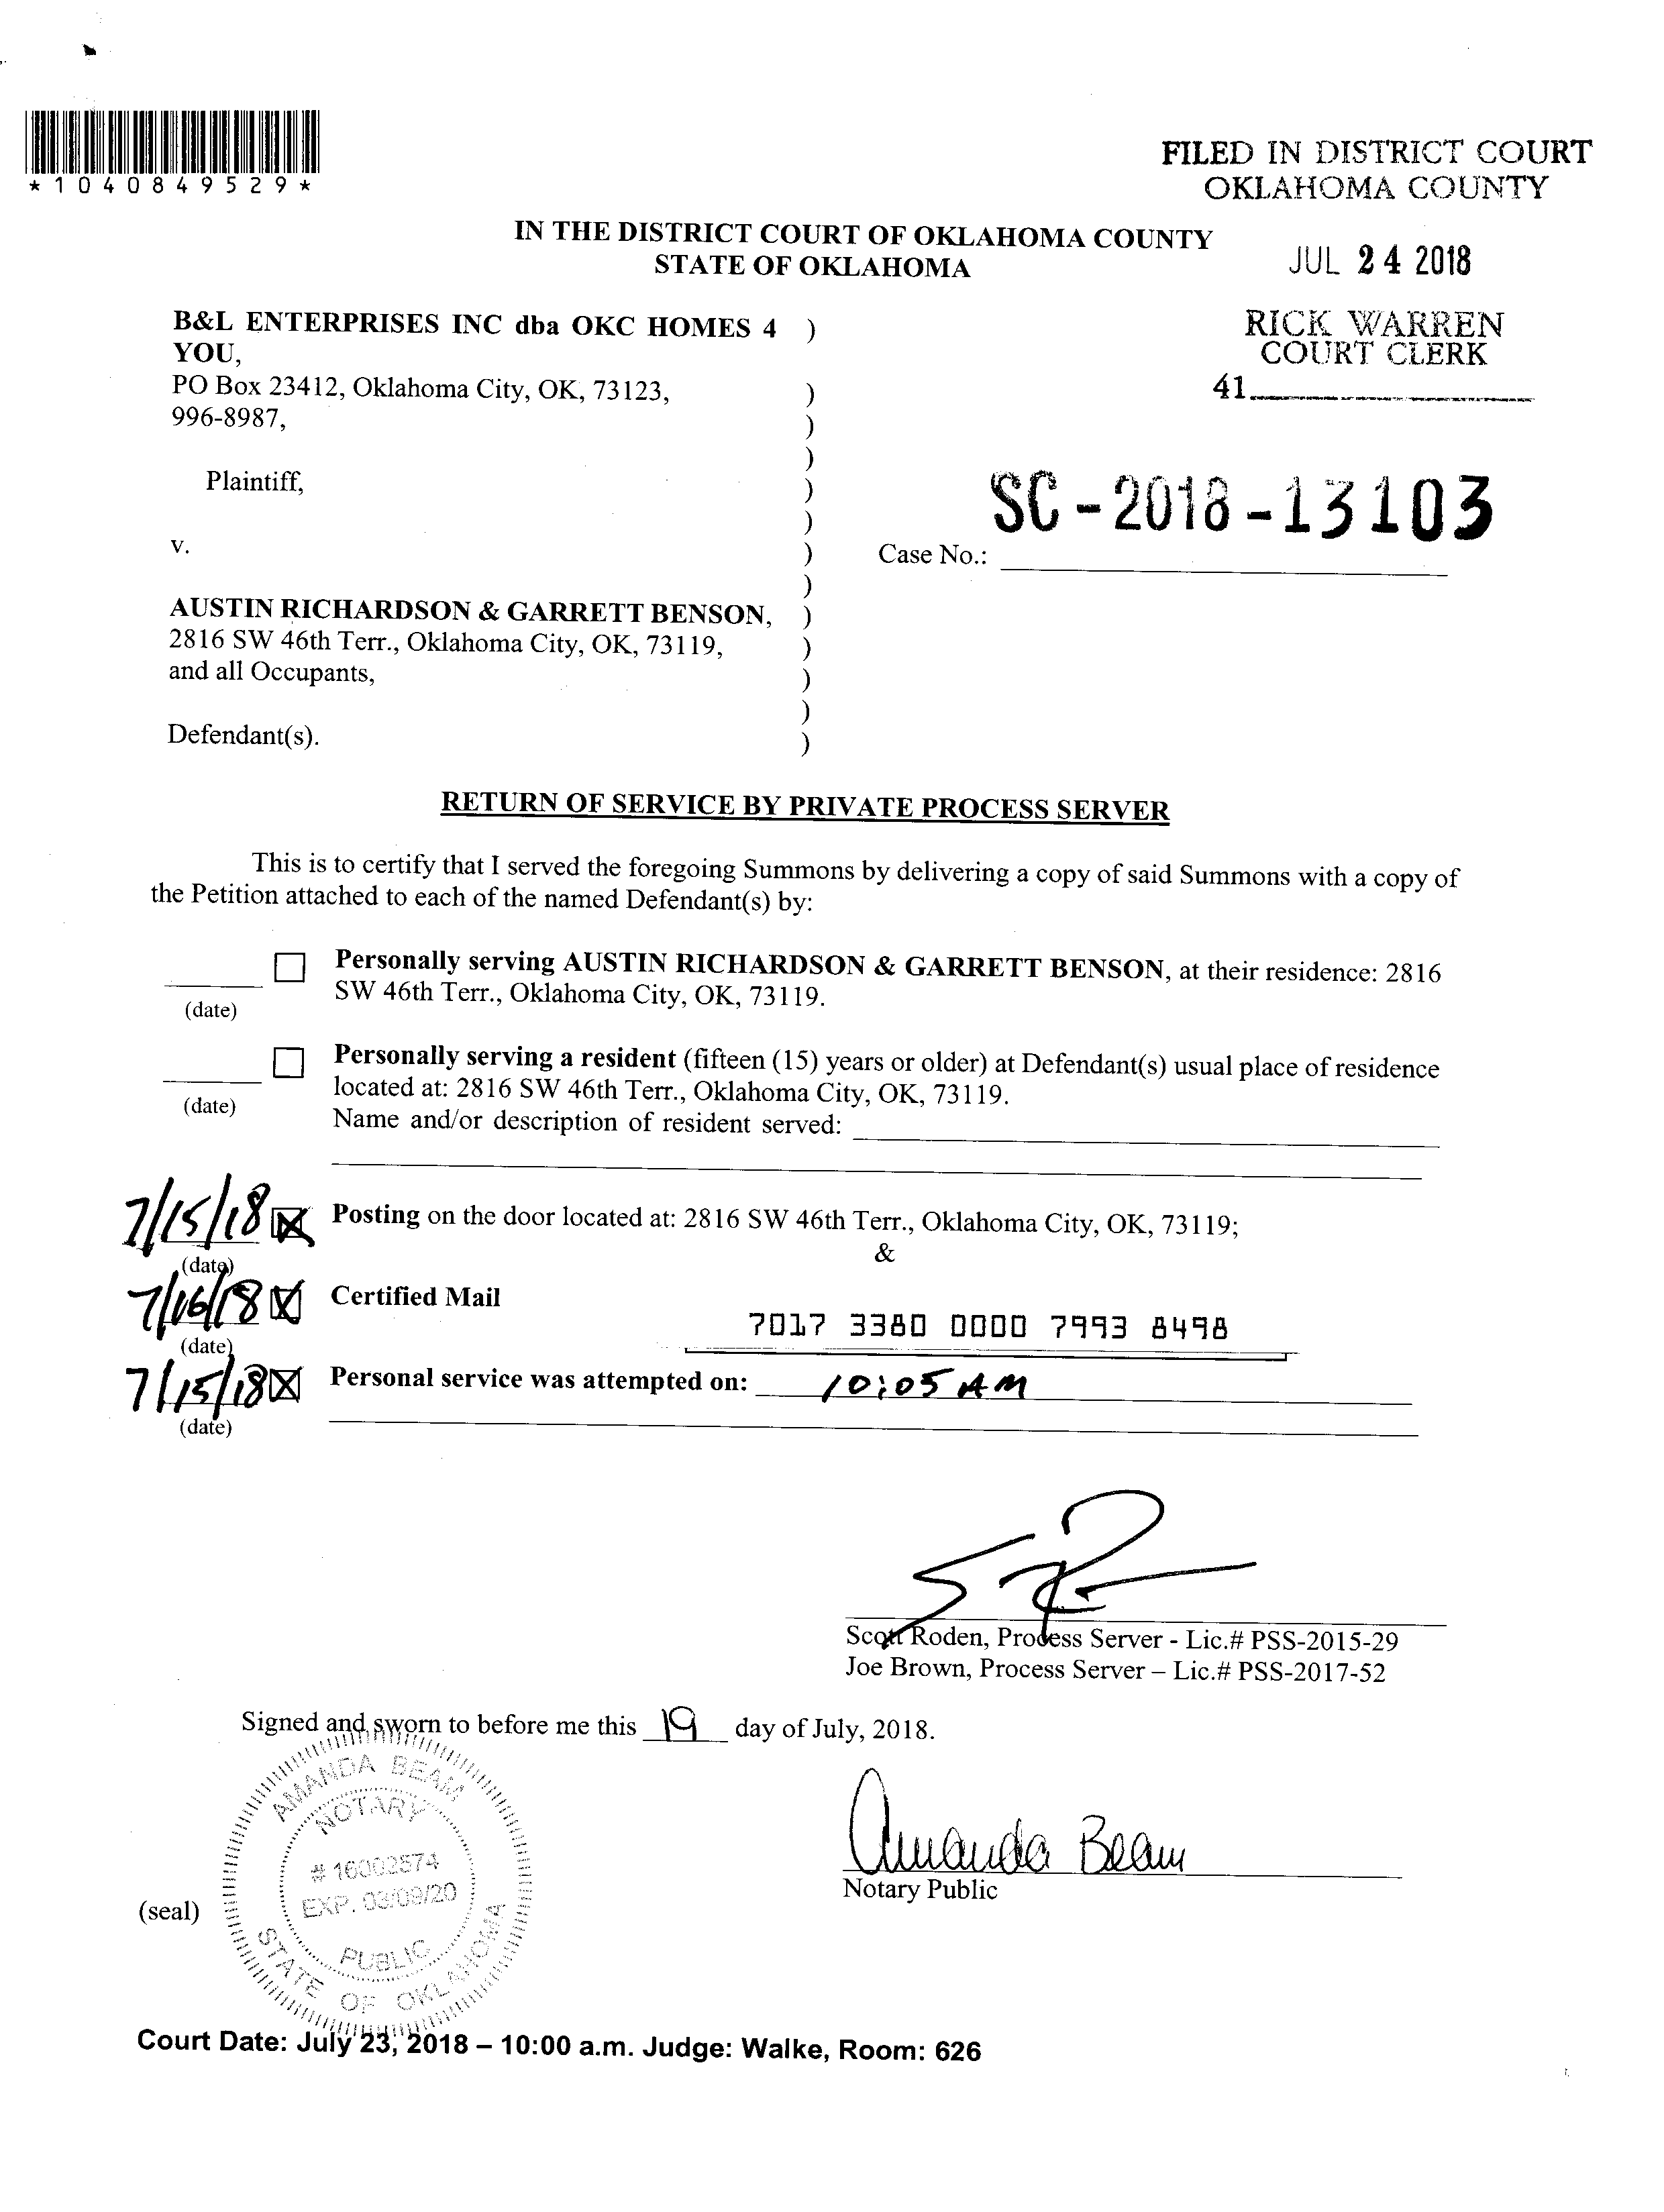 *1040849529*
FILED IN DISTRICT COURT
OKLAHOMA COUNTY
IN THE DISTRICT COURT OF OKLAHOMA COUNTY
STATE OF OKLAHOMA
JUL 24 2018
RICK WARREN
COURT CLERK
41
B&L ENTERPRISES INC dba OKC HOMES 4 )
YOU,
PO Box 23412, Oklahoma City, OK, 73123, )
996-8987, )
)
Plaintiff, )
)
v. )
)
SC-2018-13103
Case No.:
AUSTIN RICHARDSON & GARRETT BENSON, )
2816 SW 46th Terr., Oklahoma City, OK, 73119, )
and all Occupants, )
)
Defendant(s). )
RETURN OF SERVICE BY PRIVATE PROCESS SERVER
This is to certify that I served the foregoing Summons by delivering a copy of said Summons with a copy of
the Petition attached to each of the named Defendant(s) by:
Personally serving AUSTIN RICHARDSON & GARRETT BENSON, at their residence: 2816
SW 46th Terr., Oklahoma City, OK, 73119.
(date)
Personally serving a resident (fifteen (15) years or older) at Defendant(s) usual place of residence
located at: 2816 SW 46th Terr., Oklahoma City, OK, 73119.
(date)
Name and/or description of resident served:
7/15/18 Posting on the door located at: 2816 SW 46th Terr., Oklahoma City, OK, 73119;
(date)
&
7/16/18 Certified Mail
7017 3380 0000 7993 8498
(date)
7/15/18 Personal service was attempted on: 10:05 AM
(date)
Scott Roden, Process Server - Lic.# PSS-2015-29
Joe Brown, Process Server – Lic.# PSS-2017-52
Signed and sworn to before me this 19 day of July, 2018.
AMANDA BEAM
NOTARY
# 16002574
EXP. 03/09/20
PUBLIC
STATE OF OKLAHOMA
Amanda Beam
Notary Public
(seal)
Court Date: July 23, 2018 – 10:00 a.m. Judge: Walke, Room: 626